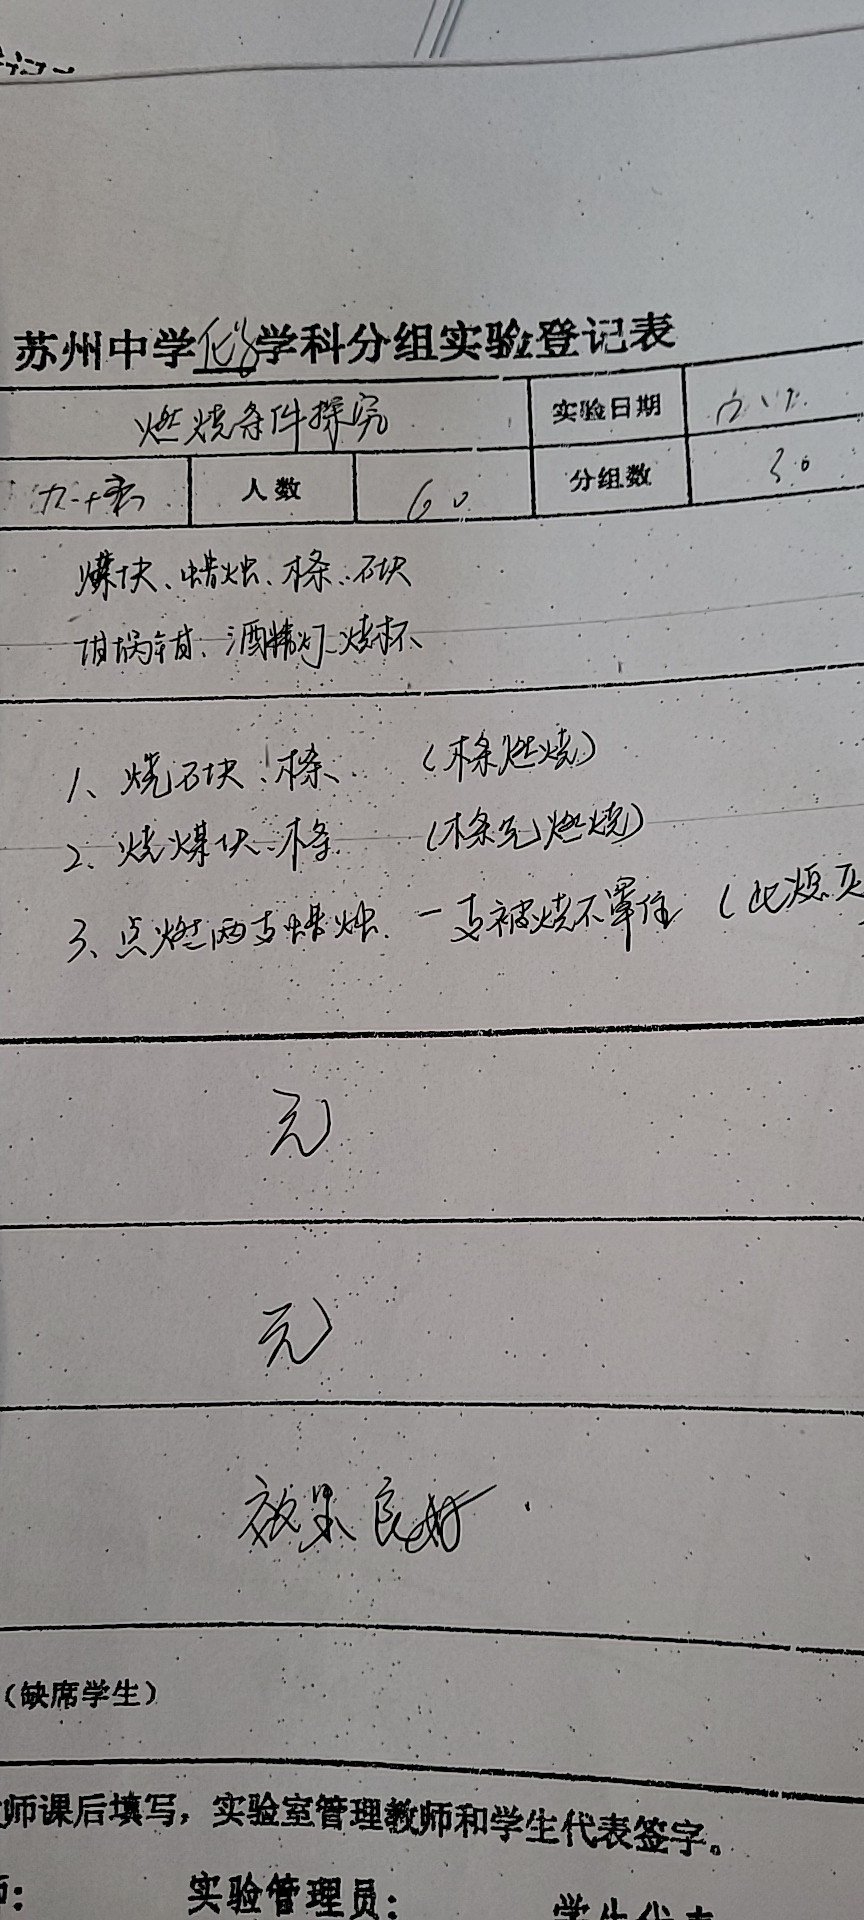 苏州中学化学学科分组实验登记表
燃烧条件探究 实验日期
人数 60 分组数 30
煤块、蜡烛、木条、石块
坩埚钳、酒精灯、烧杯、
1、烧石块、木条、 (木条燃烧)
2、烧煤块、木条 (木条先燃烧)
3、点燃两支蜡烛、一支被烧杯罩住 (此熄灭
无
无
效果良好.
(缺席学生)
师课后填写，实验室管理教师和学生代表签字。
师: 实验管理员: 学生代表